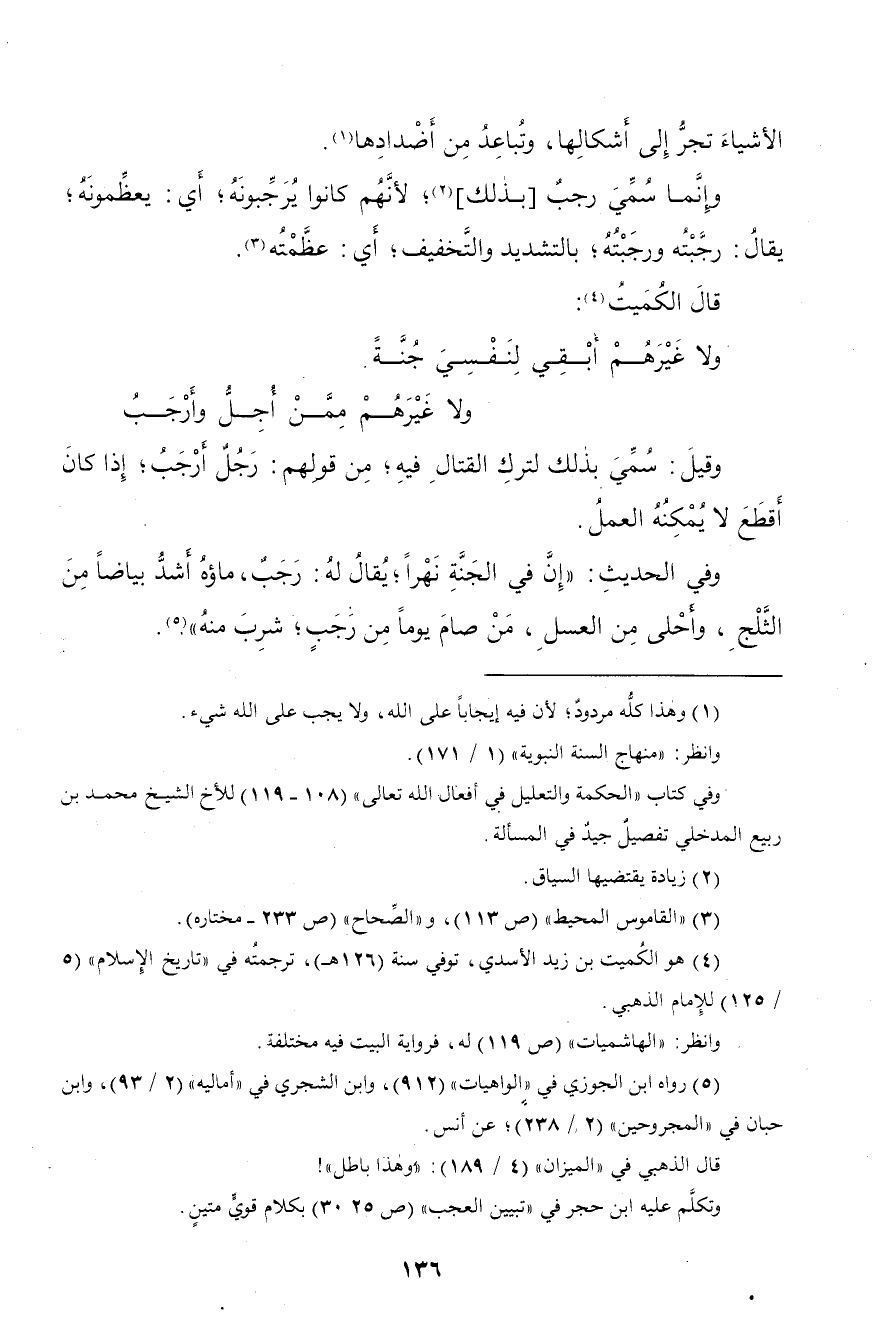 الأشياءَ تجرُّ إِلى أَشكالِها، وتُباعِدُ مِن أَضْدادِها(١).
وإِنَّما سُمِّيَ رجبٌ [بذٰلك](٢)؛ لأنَّهُم كانوا يُرَجِّبونَهُ؛ أَي: يعظِّمونَهُ؛
يقالُ: رجَّبْتُه ورجَبْتُهُ؛ بالتشديد والتَّخفيف؛ أَي: عظَّمْتُه(٣).
قالَ الكُمَيتُ(٤):
ولا غَيْرَهُمْ أَبْقِي لِنَفْسِيَ جُنَّةً
ولا غَيْرَهُمْ مِمَّنْ أُجِلُّ وأَرْجَبُ
وقيلَ: سُمِّيَ بذٰلك لتركِ القتالِ فيهِ؛ مِن قولِهم: رَجُلٌ أَرْجَبُ؛ إِذا كانَ
أَقطَعَ لا يُمْكِنُهُ العملُ.
وفي الحديثِ: «إِنَّ في الجَنَّةِ نَهْراً؛ يُقالُ لهُ: رَجَبٌ، ماؤهُ أَشدُّ بياضاً مِنَ
الثَّلْجِ، وأَحْلى مِن العسلِ، مَنْ صامَ يوماً مِن رَجَبٍ؛ شرِبَ منهُ»(٥).
(١) وهٰذا كلُّه مردودٌ؛ لأن فيه إيجاباً على الله، ولا يجب على الله شيء.
وانظر: «منهاج السنة النبوية» (١ / ١٧١).
وفي كتاب «الحكمة والتعليل في أفعال الله تعالى» (١٠٨ ـ ١١٩) للأخ الشيخ محمد بن
ربيع المدخلي تفصيلٌ جيدٌ في المسألة.
(٢) زيادة يقتضيها السياق.
(٣) «القاموس المحيط» (ص ١١٣)، و«الصِّحاح» (ص ٢٣٣ ـ مختاره).
(٤) هو الكُميت بن زيد الأسدي، توفي سنة (١٢٦هـ)، ترجمتُه في «تاريخ الإِسلام» (٥
/ ١٢٥) للإِمام الذهبي.
وانظر: «الهاشميات» (ص ١١٩) له، فرواية البيت فيه مختلفة.
(٥) رواه ابن الجوزي في «الواهيات» (٩١٢)، وابن الشجري في «أماليه» (٢ / ٩٣)، وابن
حبان في «المجروحين» (٢ / ٢٣٨)؛ عن أنس.
قال الذهبي في «الميزان» (٤ / ١٨٩): «وهٰذا باطل»!
وتكلَّم عليه ابن حجر في «تبيين العجب» (ص ٢٥ ٣٠) بكلام قويٍّ متينٍ.
١٣٦